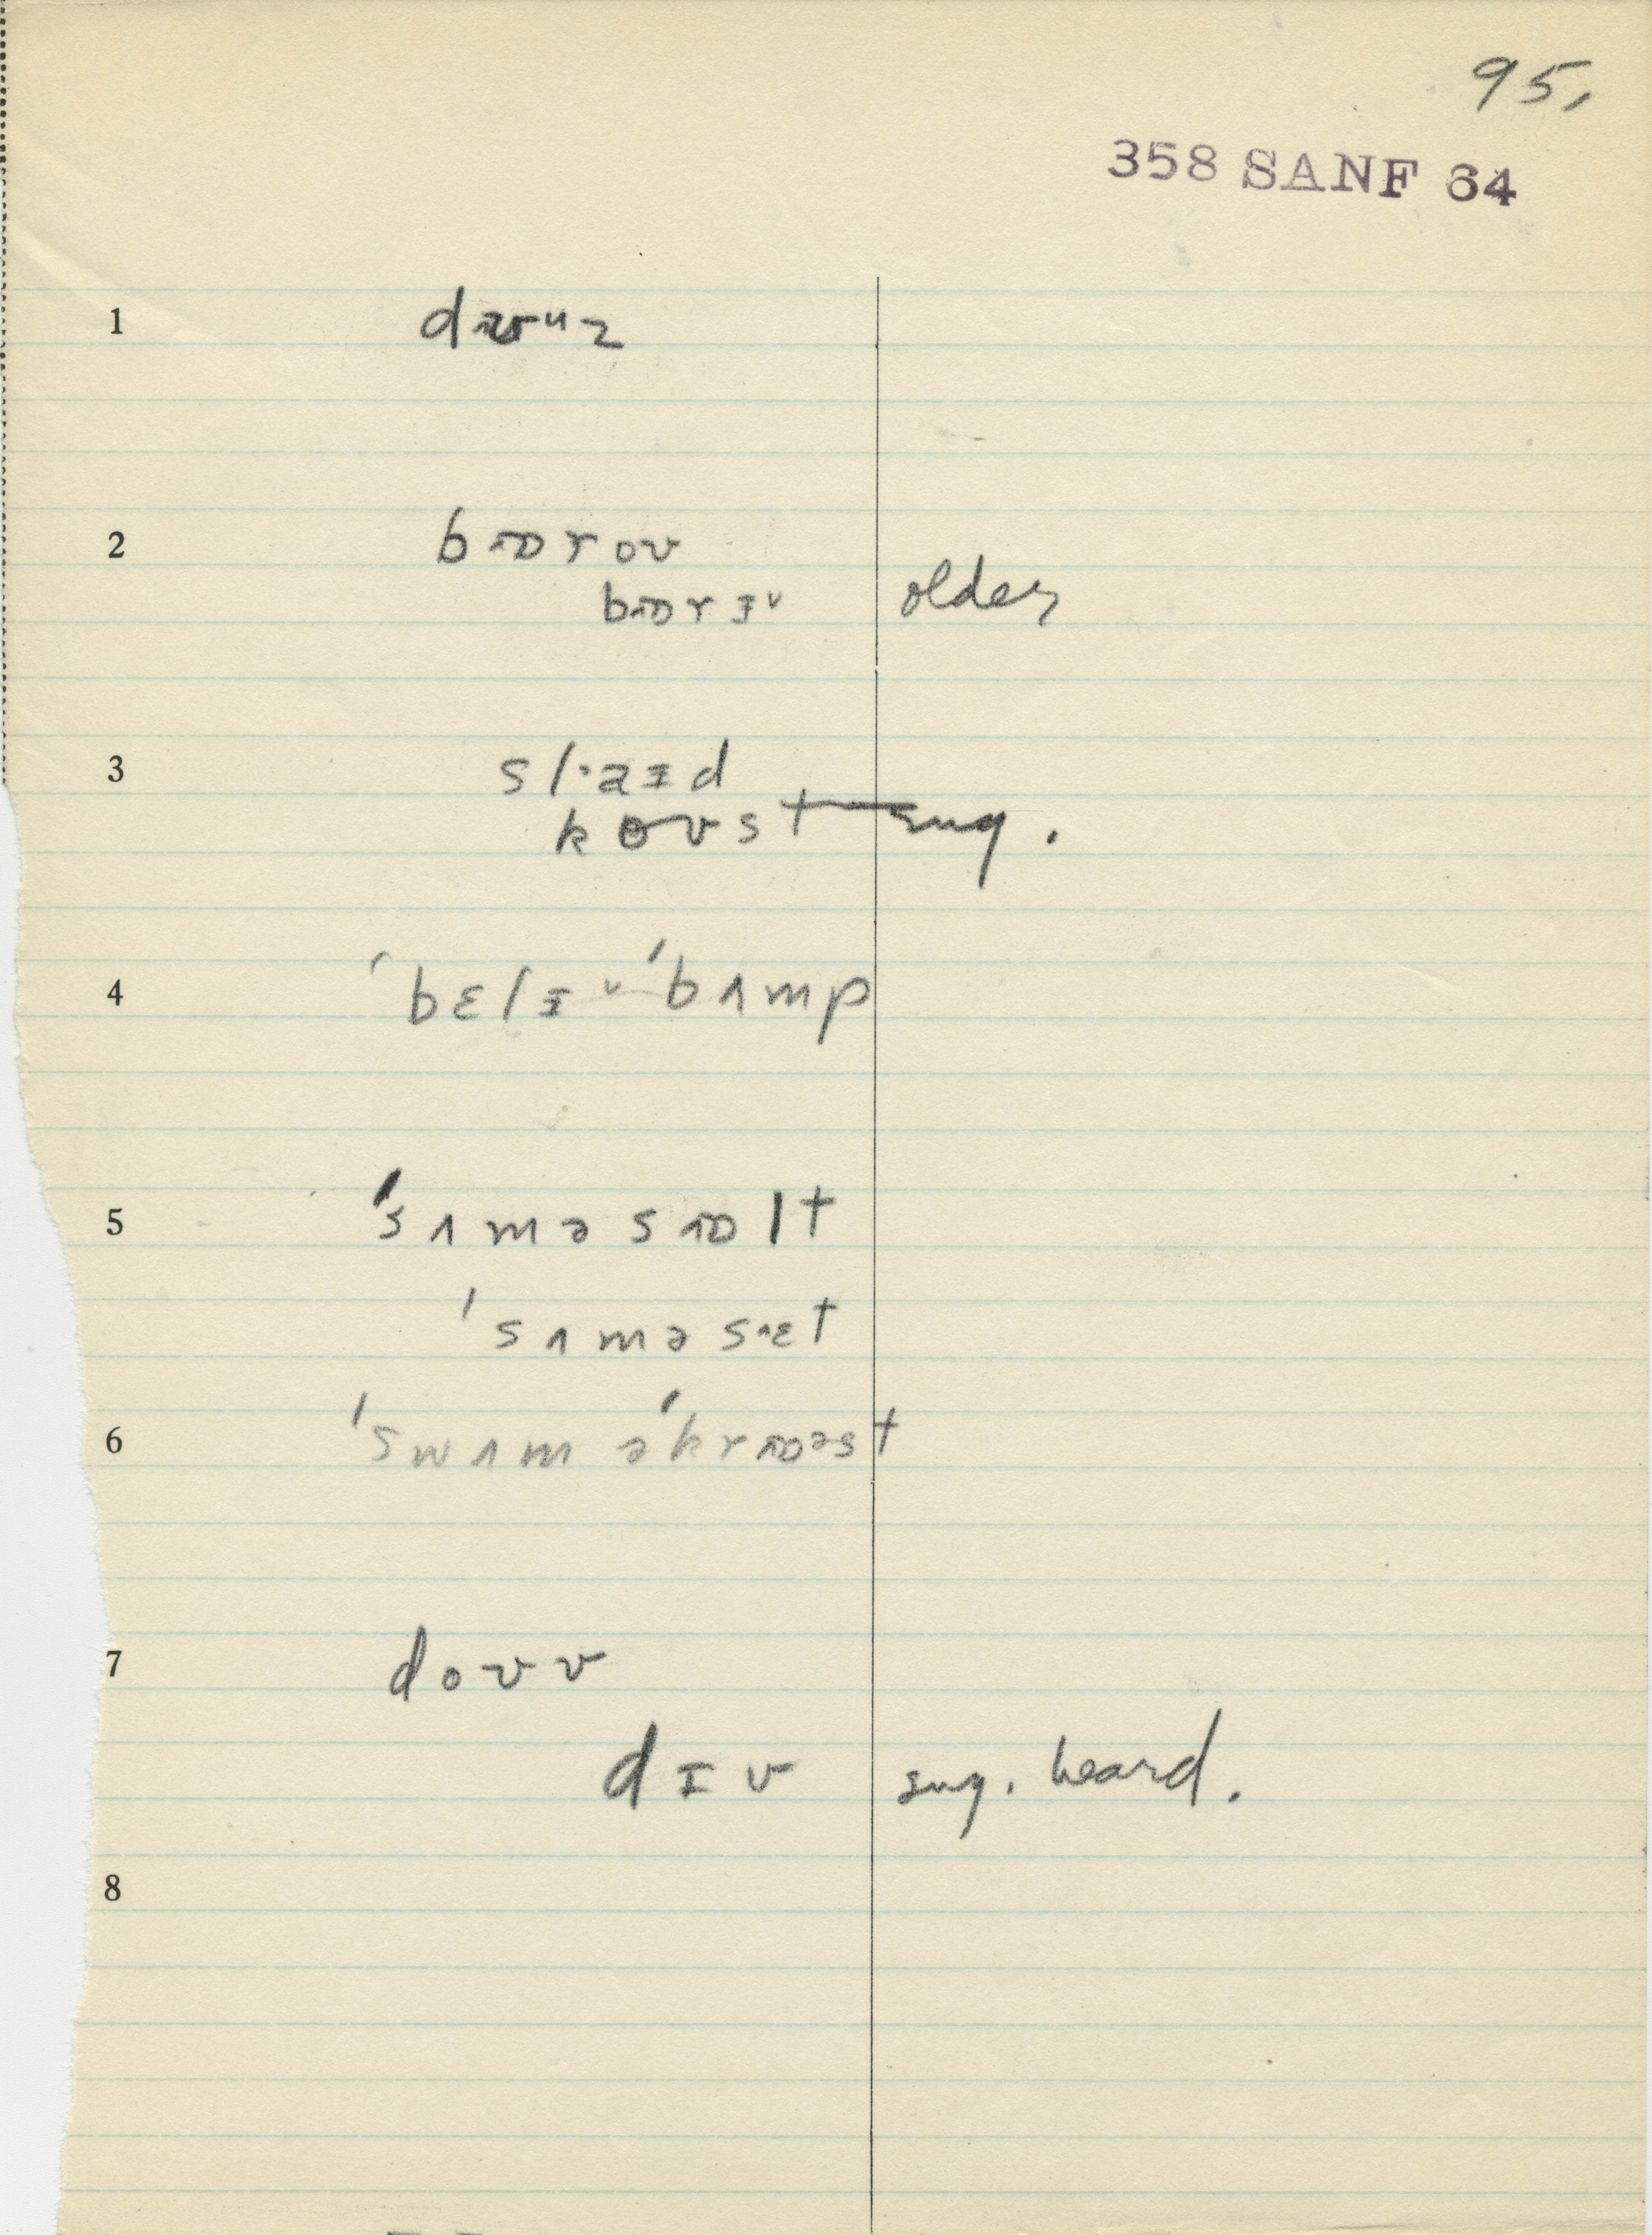 95.
358 SANF 64
1
2 bɒrov
bɒrɪᵛ older
3 slaɪd
koʊst sug.
4 ˈbɛlɪᵛˈbʌmp
5 ˈsʌməsɒlt
ˈsʌməsɛt
6 ˈswʌməˈkrɒəst
7 dovv
dɪv sug. heard.
8